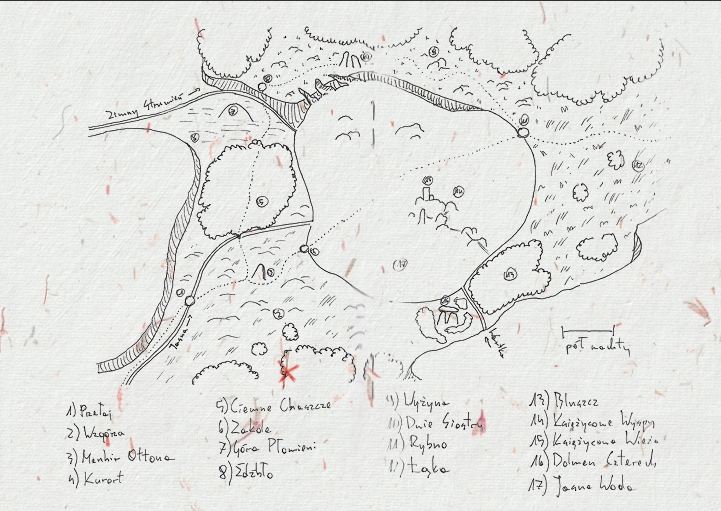 Zimny Strumień
Jasna
pół wachty
1) Przełaj
2) Wzgórza
3) Menhir Ottona
4) Kurort
5) Ciemne Chaszcze
6) Zakole
7) Góra Płomieni
8) Źdźbło
9) Wyżyna
10) Dwie Siostry
11) Rybno
12) Łąka
13) Bluszcz
14) Księżycowe Wyspy
15) Księżycowa Wieża
16) Dolmen Czterech
17) Jasna Woda